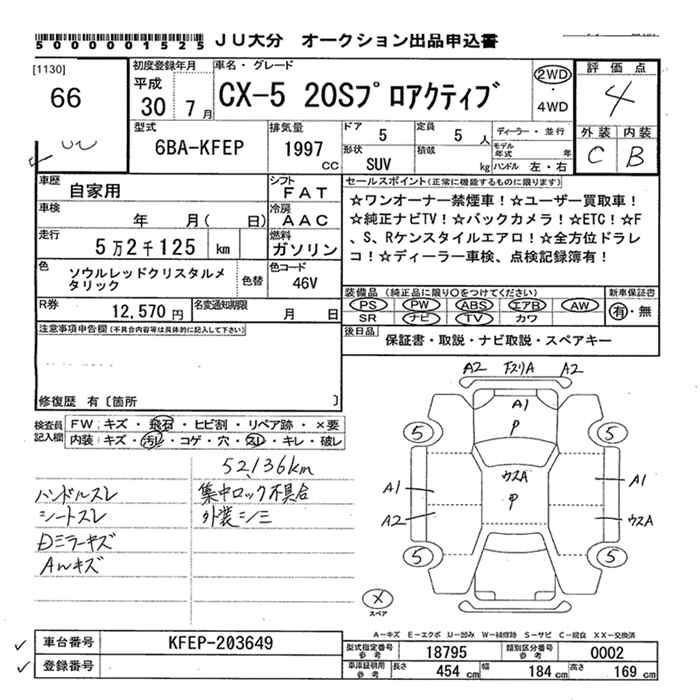 5000001525 JU大分 オークション出品申込書
[1130]
66
初度登録年月
平成
30年 7月
車名・グレード
CX-5 20Sプロアクティブ
2WD
・
4WD
評価点
4
外装 内装
C B
型式
6BA-KFEP
排気量
1997
cc
ドア 5
定員 5人
ディーラー・並行
形状 SUV
積載 kg
モデル年式 年
ハンドル 左・右
車歴 自家用
シフト FAT
車検 年 月( 日)
冷房 AAC
走行 5万2千125 km
燃料 ガソリン
色 ソウルレッドクリスタルメタリック
色替
色コード 46V
R券 12,570円
名変通知期限 月 日
セールスポイント(正常に機能するものに限ります)
☆ワンオーナー禁煙車!☆ユーザー買取車!
☆純正ナビTV!☆バックカメラ!☆ETC!☆F
、S、Rケンスタイルエアロ!☆全方位ドラレ
コ!☆ディーラー車検、点検記録簿有!
装備品(純正品に限り○をつけてください)
PS PW ABS エアB AW
SR ナビ TV カワ
新車保証書
有・無
後日品 保証書・取説・ナビ取説・スペアキー
注意事項申告欄(不具合内容等は具体的に記入して下さい)
修復歴 有〔箇所 〕
検査員記入欄
FW:キズ・飛石・ヒビ割・リペア跡・×要
内装:キズ・汚レ・コゲ・穴・スレ・キレ・破レ
52,136km
ハンドルスレ 集中ロック不具合
シートスレ 外装シミ
Dミラーキズ
AWキズ
A2 下スリA A2
A1
P
5 5
ウスA
P
A1 A1
A2 ウスA
5 5
×
スペア
A-キズ E-エクボ U-凹み W-補修跡 S-サビ C-腐食 XX-交換済
車台番号 KFEP-203649
登録番号
型式指定番号 参考 18795
類別区分番号 参考 0002
車庫証明用 参考 長さ 454 cm 幅 184 cm 高さ 169 cm